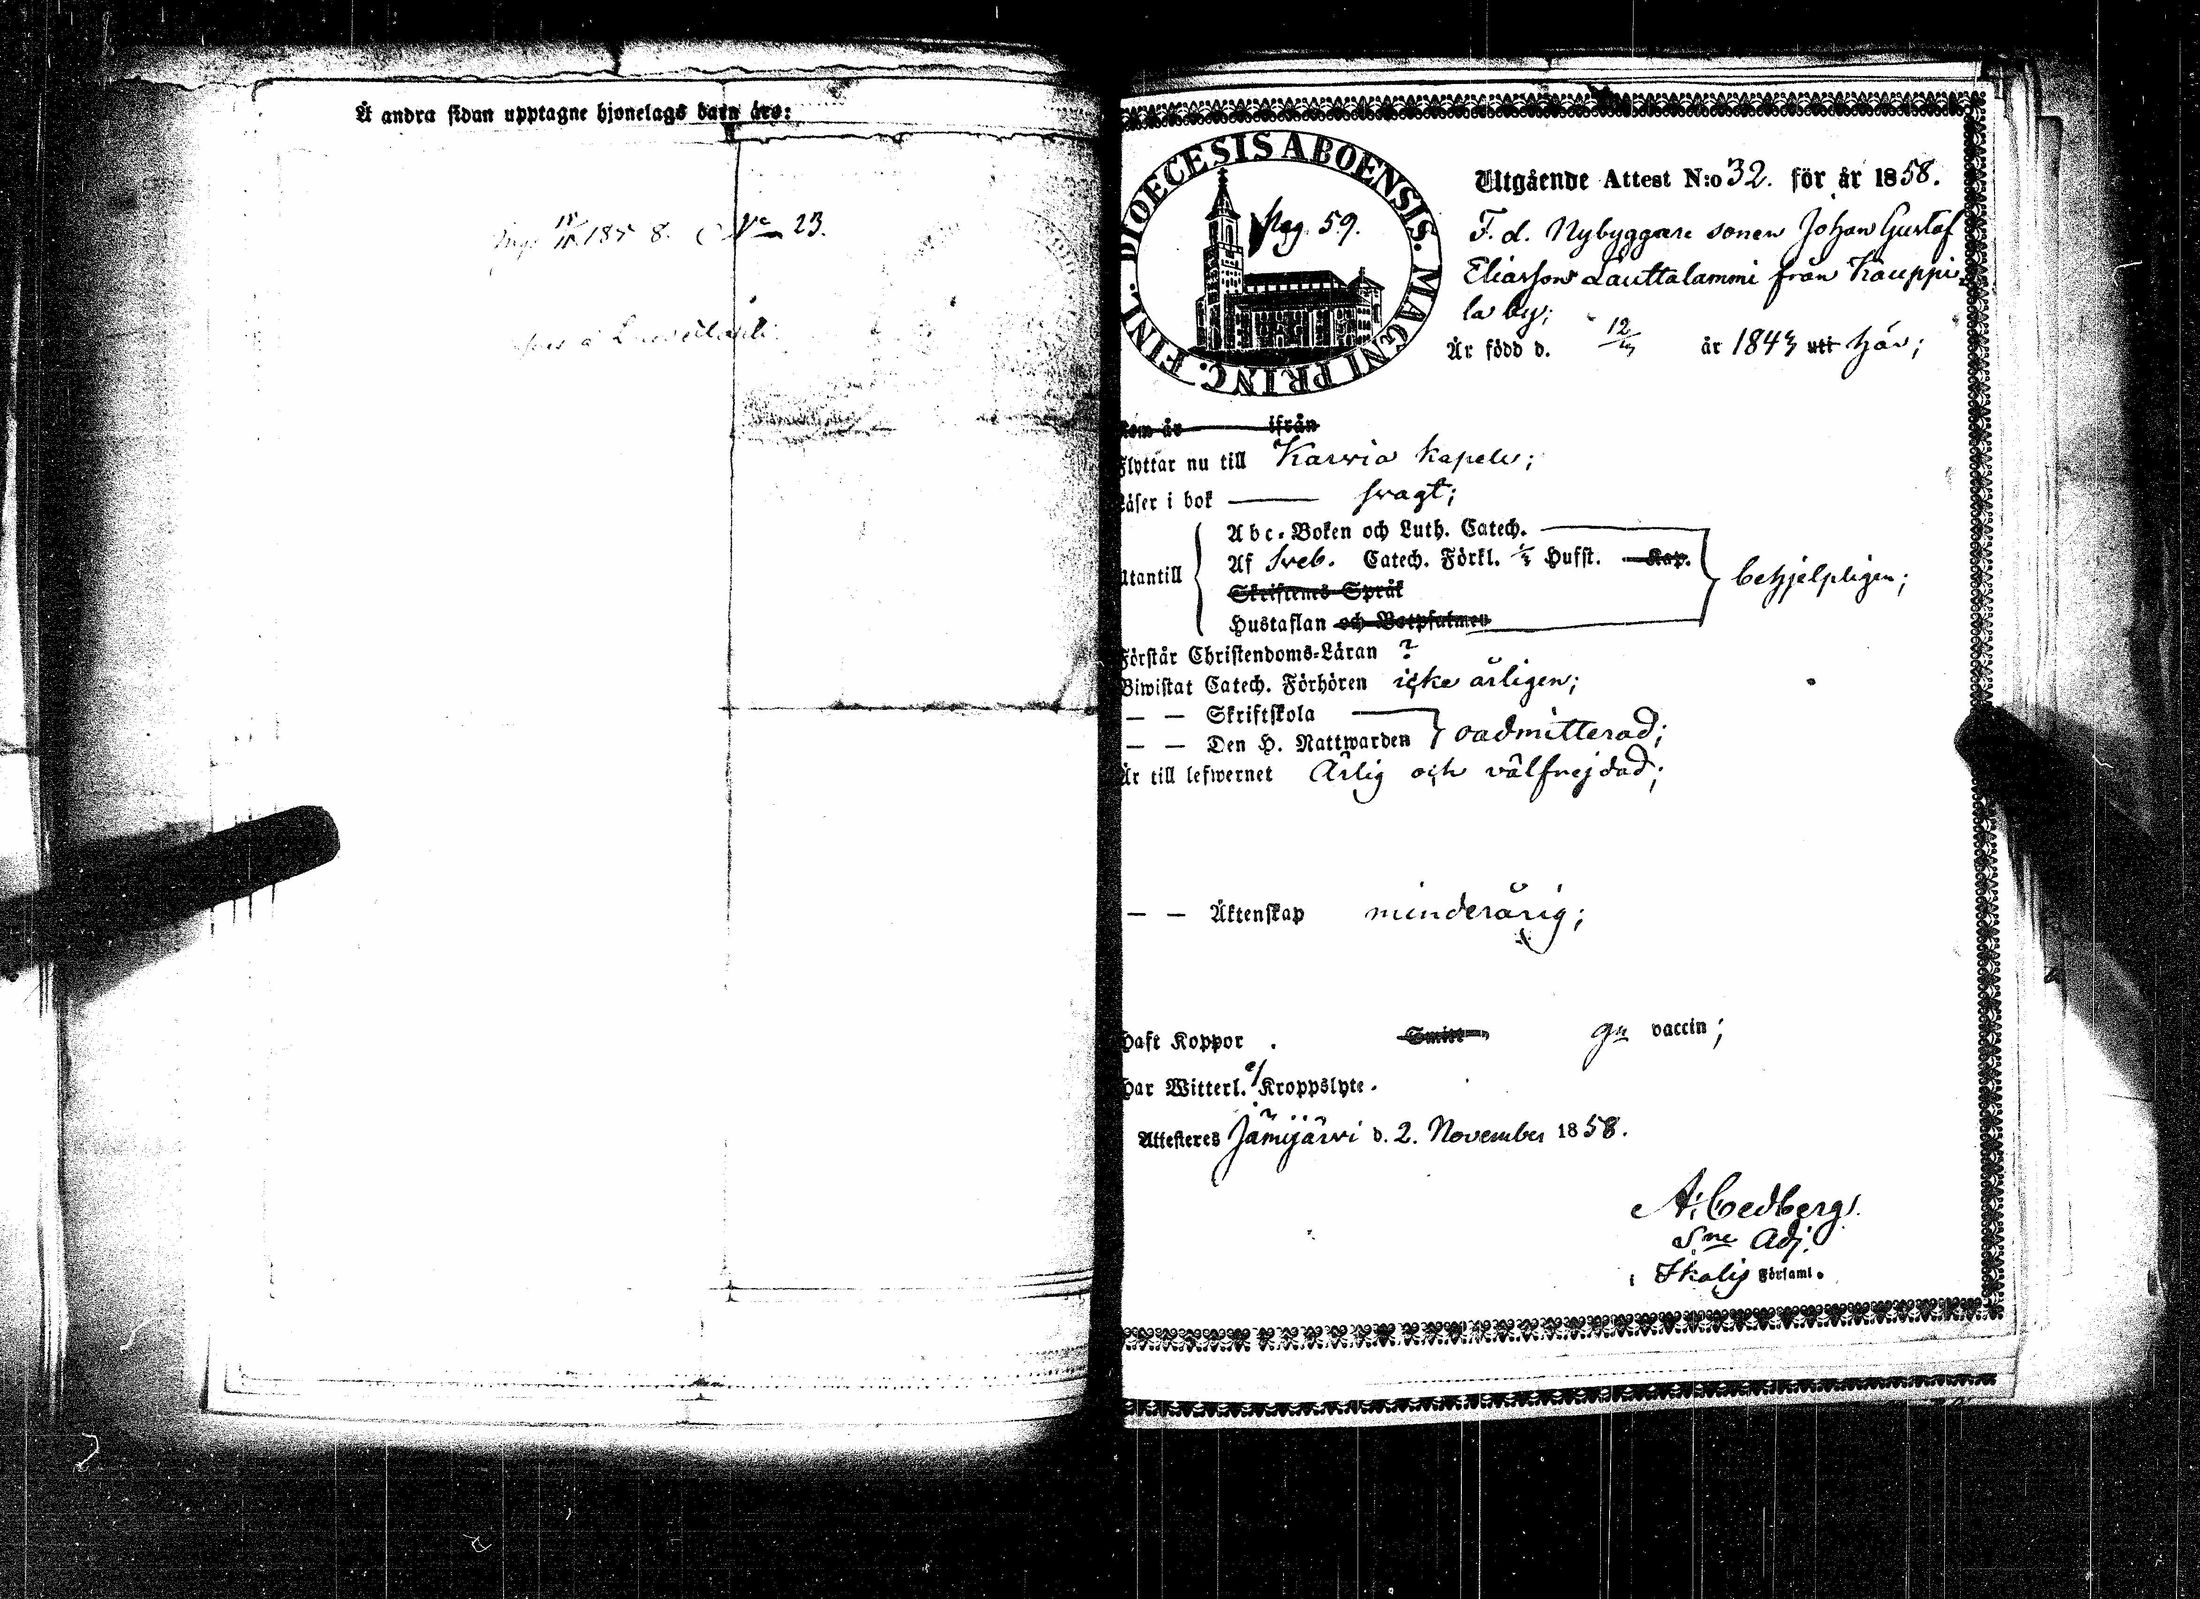 Å andra sidan upptagne hjonelags barn äro:
1858. No 23.
DIOECESIS ABOENSIS. MAGNI PRINC. FINL.
Pag. 59.
Utgående Attest N:o 32. för år 1858.
F. d. Nybyggare sonen Johan Gustaf
Eliasson Lauttalammi från Kauppi-
la by;
Är född d. 12/ år 1843 utt här;
Kom år ifrån
Flyttar nu till Karvia kapell;
Läser i bok — svagt;
Utantill
Abc-Boken och Luth. Catech.
Af Sveb. Catech. Förkl. Hufst. Kap.
Skriftenes Språk
Hustaflan och Botpsalmen
behjelpligen;
Förstår Christendoms-Läran ?
Biwistat Catech. Förhören icke årligen;
— — Skriftskola
— — Den H. Nattwarden
oadmitterad;
Är till lefwernet Ärlig och välfrejdad;
— — Äktenskap minderårig;
Haft Koppor . Smitt gn vaccin;
Har Witterl. ej Kroppslyte.
Attesteres Jämijärvi d. 2. November 1858.
A. Cedberg.
Sne Adj.
i Ikalis Församl.